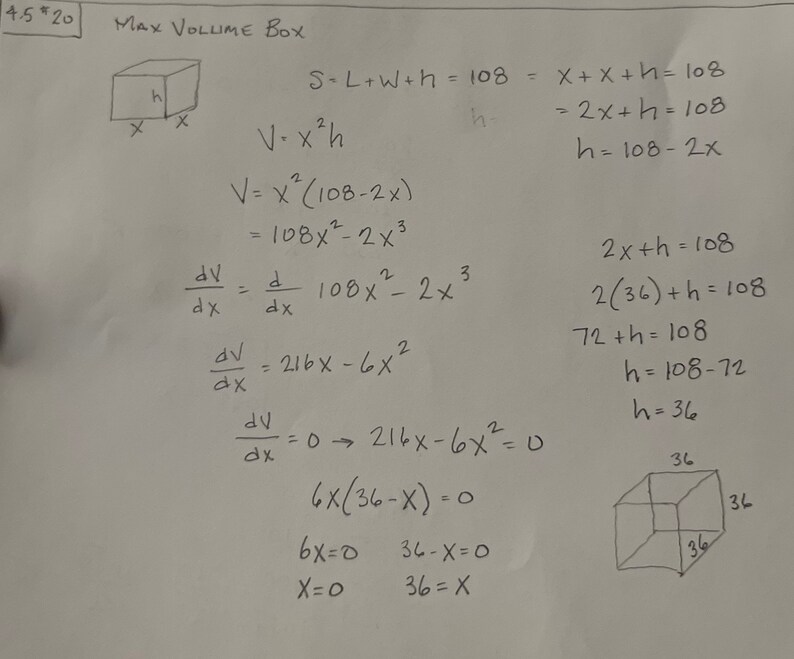 4.5 #20
MAX VOLUME BOX
h
x x
S = L + W + h = 108 = x + x + h = 108
h-
= 2x + h = 108
h = 108 - 2x
V = x²h
V = x²(108 - 2x)
= 108x² - 2x³
dV/dx = d/dx 108x² - 2x³
dV/dx = 216x - 6x²
dV/dx = 0 → 216x - 6x² = 0
6x(36 - x) = 0
6x = 0 36 - x = 0
x = 0 36 = x
2x + h = 108
2(36) + h = 108
72 + h = 108
h = 108 - 72
h = 36
36
36
36